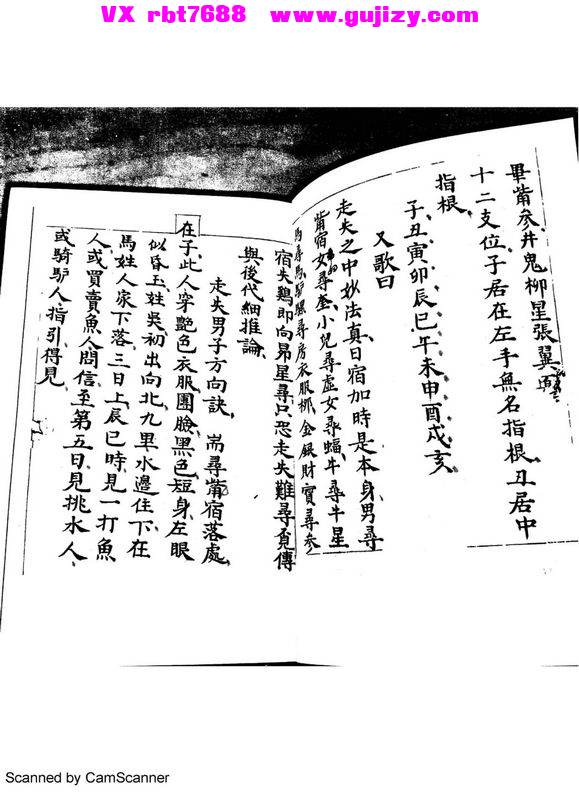 VX rbt7688 www.gujizy.com
畢觜參井鬼柳星張翼
十二支位子居在左手無名指根丑居中
指根
子丑寅卯辰巳午未申酉戌亥
又歌曰
走失之中妙法真日宿加時是本身男尋
觜宿女尋奎小兒尋虛女尋蝠牛尋牛星
尋房衣服柳金銀財寶尋參
宿失鷄即向昴星尋只恐走失難尋覔傳
與後代細推論
走失男子方向訣耑尋觜宿落處
在子此人穿艷色衣服團臉黑色短身左眼
似昏玉姓吳初出向北九里水邊住下在
馬姓人家下落三日上辰巳時見一打魚
人或買賣魚人問信至第五日見挑水人
或騎驴人指引得見
Scanned by CamScanner